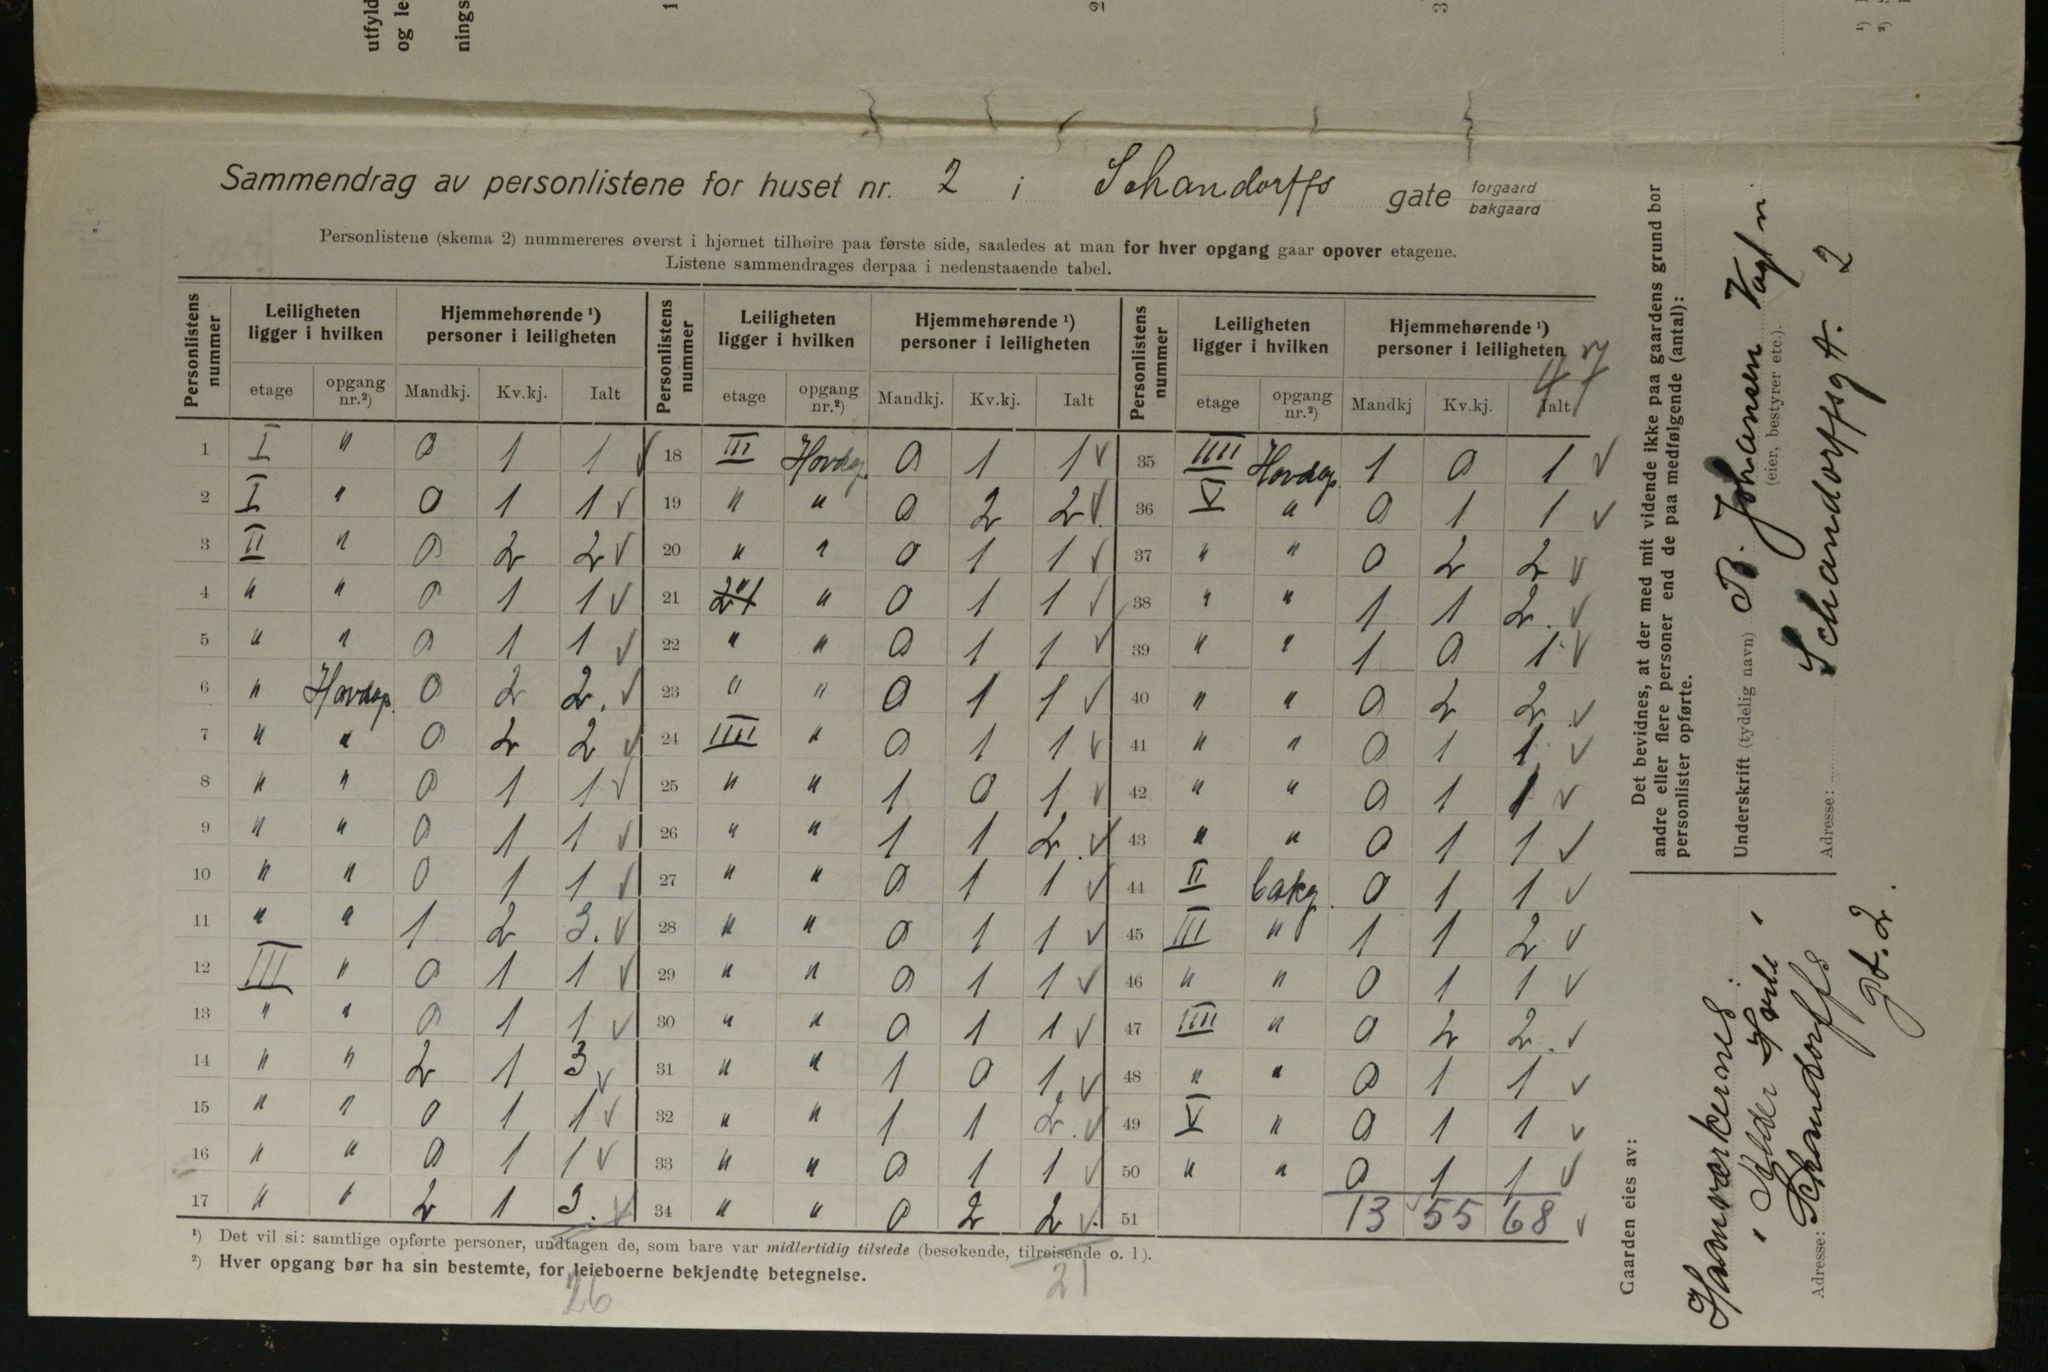 utfyld
og le
nings
1
2
3
1)
2)
Sammendrag av personlistene for huset nr. 2 i Schandorffs gate forgaard bakgaard
Personlistene (skema 2) nummereres øverst i hjørnet tilhøire paa første side, saaledes at man for hver opgang gaar opover etagene.
Listene sammendrages derpaa i nedenstaaende tabel.
Personlistens nummer | Leiligheten ligger i hvilken | Hjemmehørende 1) personer i leiligheten | Personlistens nummer | Leiligheten ligger i hvilken | Hjemmehørende 1) personer i leiligheten | Personlistens nummer | Leiligheten ligger i hvilken | Hjemmehørende 1) personer i leiligheten
47
etage | opgang nr.2) | Mandkj. | Kv.kj. | Ialt | etage | opgang nr.2) | Mandkj. | Kv.kj. | Ialt | etage | opgang nr.2) | Mandkj | Kv.kj. | Ialt
1 I " 0 1 1 ✓ 18 III Hovdop. 0 1 1 ✓ 35 IIII Hovdop. 1 0 1 ✓
2 I " 0 1 1 ✓ 19 " " 0 2 2 ✓ 36 V " 0 1 1 ✓
3 II " 0 2 2 ✓ 20 " " 0 1 1 ✓ 37 " " 0 2 2 ✓
4 " " 0 1 1 ✓ 21 " " 0 1 1 ✓ 38 " " 1 1 2 ✓
5 " " 0 1 1 ✓ 22 " " 0 1 1 ✓ 39 " " 1 0 1 ✓
6 " Hovdop. 0 2 2. ✓ 23 " " 0 1 1 ✓ 40 " " 0 2 2 ✓
7 " " 0 2 2 ✓ 24 IIII " 0 1 1 ✓ 41 " " 0 1 1 ✓
8 " " 0 1 1 ✓ 25 " " 1 0 1 ✓ 42 " " 0 1 1 ✓
9 " " 0 1 1 ✓ 26 " " 1 1 2 ✓ 43 " " 0 1 1 ✓
10 " " 0 1 1 ✓ 27 " " 0 1 1 ✓ 44 II bakg. 0 1 1 ✓
11 " " 1 2 3. ✓ 28 " " 0 1 1 ✓ 45 III " 1 1 2 ✓
12 III " 0 1 1 ✓ 29 " " 0 1 1 ✓ 46 " " 0 1 1 ✓
13 " " 0 1 1 ✓ 30 " " 0 1 1 ✓ 47 IIII " 0 2 2 ✓
14 " " 2 1 3 ✓ 31 " " 1 0 1 ✓ 48 " " 0 1 1 ✓
15 " " 0 1 1 ✓ 32 " " 1 1 2 ✓ 49 V " 0 1 1 ✓
16 " " 0 1 1 ✓ 33 " " 0 1 1 ✓ 50 " " 0 1 1 ✓
17 " " 2 1 3. ✓ 34 " " 0 2 2 ✓ 51 13 55 68 ✓
1) Det vil si: samtlige opførte personer, undtagen de, som bare var midlertidig tilstede (besøkende, tilreisende o. l).
2) Hver opgang bør ha sin bestemte, for leieboerne bekjendte betegnelse.
26
21
Det bevidnes, at der med mit vidende ikke paa gaardens grund bor
andre eller flere personer end de paa medfølgende (antal):
personlister opførte.
Underskrift (tydelig navn) B. Johansen Vagtm.
(eier, bestyrer etc.).
Adresse: Schandorffsgt. 2
Gaarden eies av:
Haandværkernes
Adresse: Schandorffs
gt. 2.